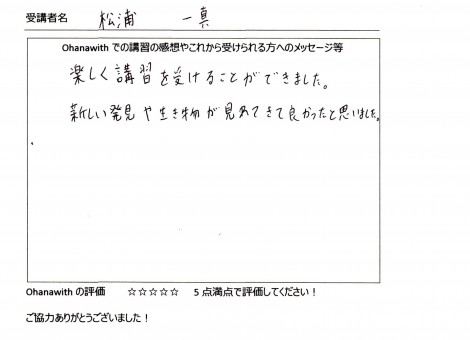 受講者名 松浦 一真
Ohanawith での講習の感想やこれから受けられる方へのメッセージ等
楽しく講習を受けることができました。
新しい発見や生き物が見れてきて良かったと思いました。
Ohanawith の評価 ☆☆☆☆☆ 5 点満点で評価してください！
ご協力ありがとうございました！